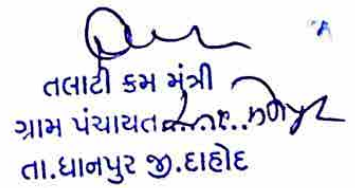 તલાટી કમ મંત્રી
ગ્રામ પંચાયત
તા.ધાનપુર જી.દાહોદ